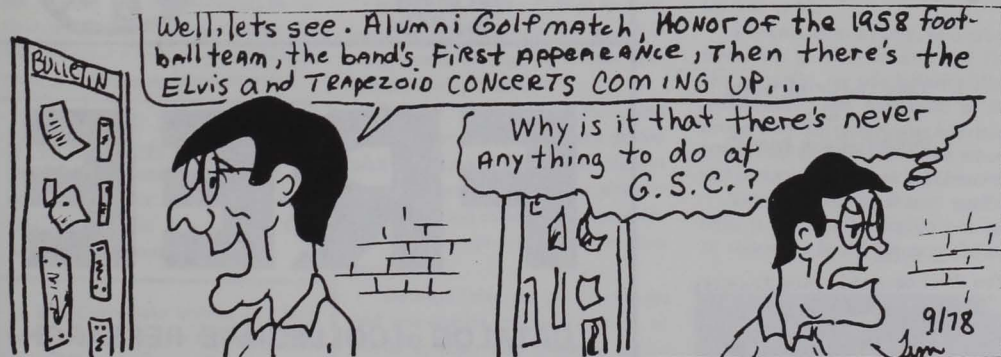 BULLETIN
Well, lets see. Alumni Golf match, HONOR of the 1958 foot-
ball team, the band's FIRST APPEARANCE, Then there's the
ELVIS and TRAPEZOID CONCERTS COMING UP...
Why is it that there's never
Anything to do at
G.S.C.?
E
9/78
Tim